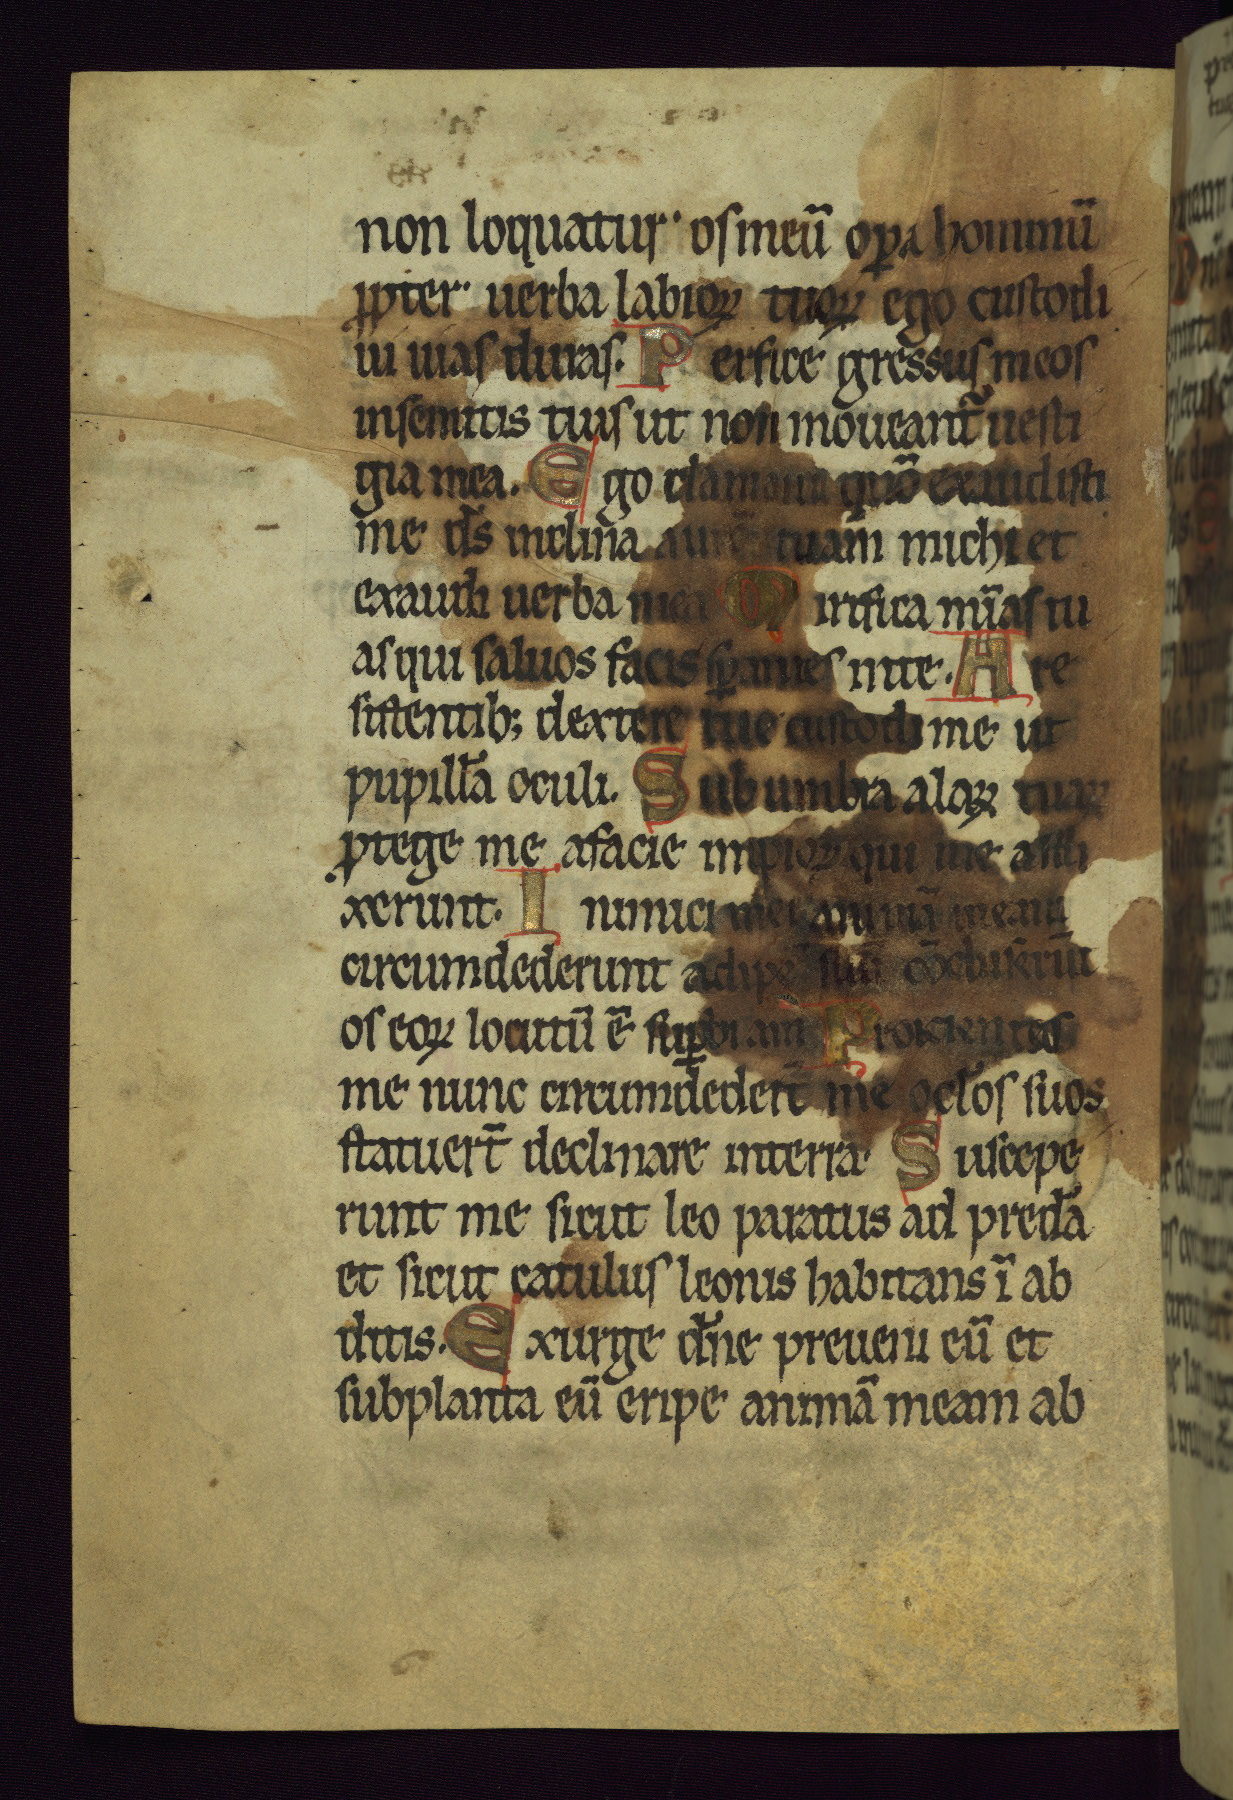 non loquatur os meū oꝑa hominū
ꝓpter uerba labioꝝ tuoꝝ ego custodi
ui uias duras. Perfice gressus meos
insemitis tuis ut non moueant᷑ uesti
gia mea. Ego clamaui quō exaudisti
me ds̄ inclina aurē tuam michi et
exaudi uerba mea Mirifica mīas tu
as qui saluos facis sꝑantes inte. A re
sistentib; dextere tue custodi me ut
pupillā oculi. Sub umbra alaꝝ tuaꝝ
ꝓtege me afacie impioꝝ qui me affli
xerunt. Inimici mei animā meam
circumdederunt adipē suū
os eoꝝ locutū ē suꝑbiam Proicientes
me nunc circumdedert̄ me oclos suos
statuert̄ declinare interrā Suscepe
runt me sicut leo paratus ad predā
et sicut catulus leonis habitans ī ab
ditis. Exurge dn̄e preueni eū et
subplanta eū eripe animā meam ab